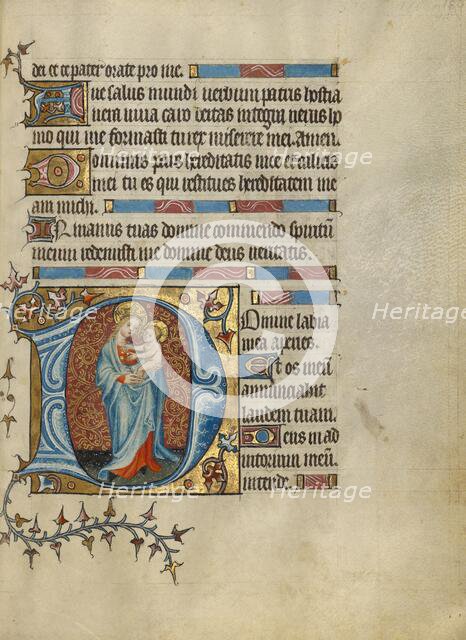 dei et ce pater orate pro me.
Ave salus mundi verbum patris hostia
viva caro deitas integra verus ho
mo qui me formasti tu rex miserere mei. Amen.
Dominus pars hereditatis mee et calicis
mei tu es qui restitues hereditatem me
am michi.
In manus tuas domine commendo spiritū
meum redemisti me domine deus veritatis.
Domine labia
mea aperies.
Et os meū
annunciabit
laudem tuam.
Deus in ad
iutorium meū
intende.
Heritage
Heritage
Heritage
Heritage
Heritage
Heritage